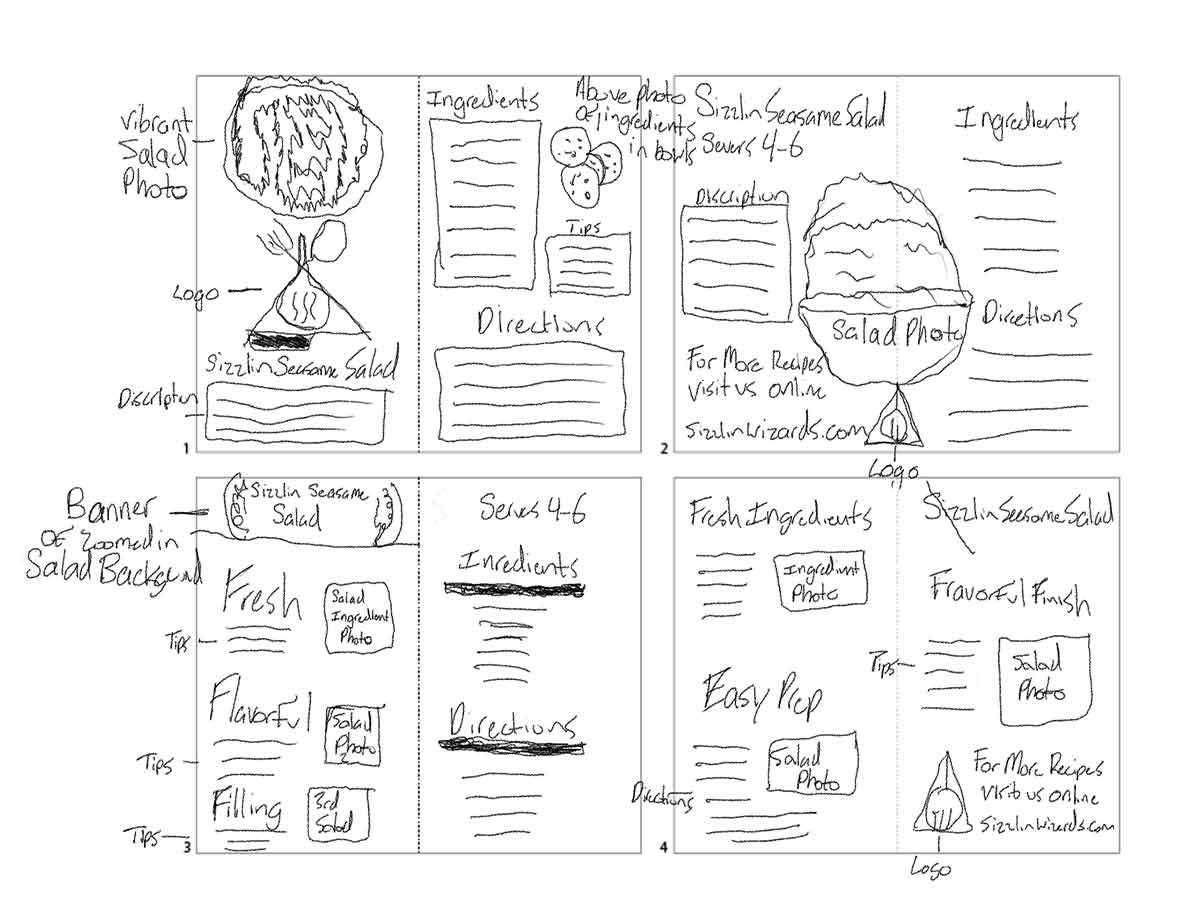 Vibrant
Salad
Photo
Logo
Sizzlin Seasame Salad
Discription
1
Ingredients
Above photo
Of ingredients
in bowls
Tips
Directions
Sizzlin Seasame Salad
Servers 4-6
Discription
Ingredients
Salad Photo
Directions
For More Recipes
visit us online
sizzlinwizards.com
2
Logo
Banner
OF Zoomed in
Salad Background
Sizzlin Seasame
Salad
Fresh
Salad
Ingredient
Photo
Tips
Flavorful
Salad
Photo
2
Tips
Filling
3rd
Salad
Tips
3
Serves 4-6
Inredients
Directions
Fresh Ingredients
Ingredient
Photo
Easy Prep
Salad
Photo
Directions
4
Sizzlin Seesome Salad
Fravorful Finish
Tips
Salad
Photo
For More Recipes
visit us online
sizzlinwizards.com
Logo